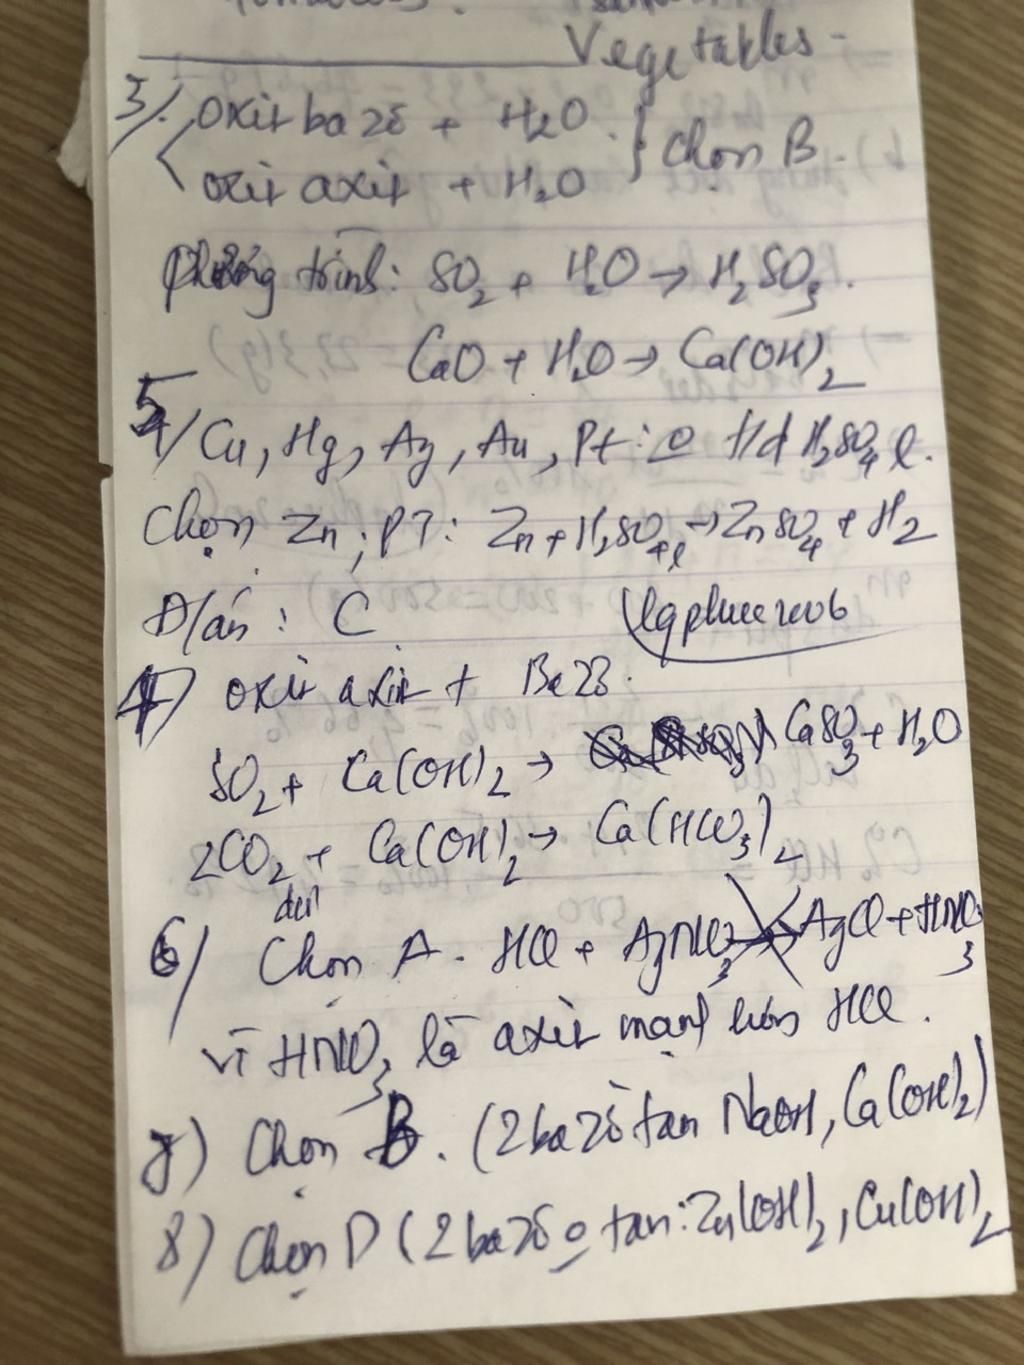 Vegetables -
3/. oxit bazơ + H2O
oxit axit + H2O } Chọn B.
phương trình: SO2 + H2O → H2SO3.
CaO + H2O → Ca(OH)2
5/ Cu, Hg, Ag, Au, Pt : o t/d H2SO4 l.
Chọn Zn ; PT: Zn + H2SO4 l → ZnSO4 + H2
Đ/án : C
lqphuc2006
4) oxit axit + Bazơ.
SO2 + Ca(OH)2 → CaSO3 + H2O
2CO2 + Ca(OH)2 → Ca(HCO3)2
6/ Chọn A. HCl + AgNO3 → AgCl + HNO3
vì HNO3 là axit mạnh hơn HCl.
7) Chọn B. (2 bazơ tan NaOH, Ca(OH)2)
8) Chọn D (2 bazơ o tan: Zn(OH)2, Cu(OH)2